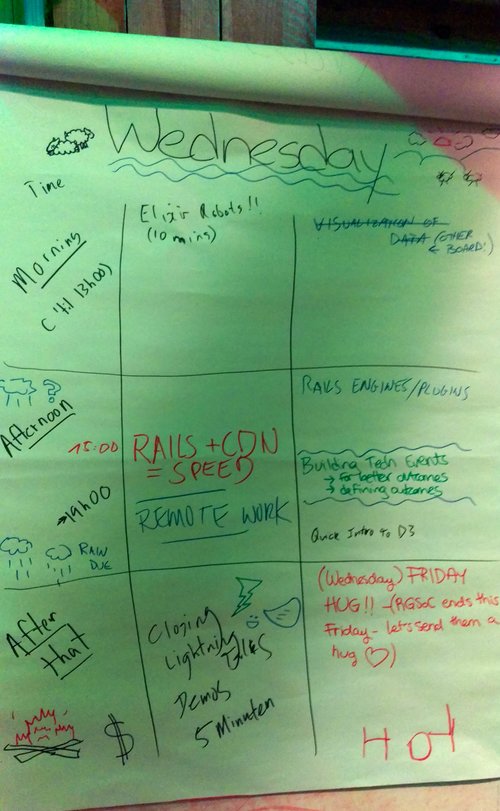 Wednesday
Time
Morning
(’til 13h00)
Elixir Robots!!
(10 mins)
VISUALIZATION OF
DATA (OTHER
← BOARD!)
?
Afternoon
→19h00
15:00 RAILS + CDN
= SPEED
REMOTE WORK
RAILS ENGINES/PLUGINS
Building Tech Events
→ for better outcomes
→ defining outcomes
Quick Intro to D3
RAIN
DUE
After
that
$
Closing
Lightning
TALKS
Demos
5 Minuten
(Wednesday) FRIDAY
HUG!! -(RGSoC ends this
Friday - let's send them a
hug ♡)
HOT